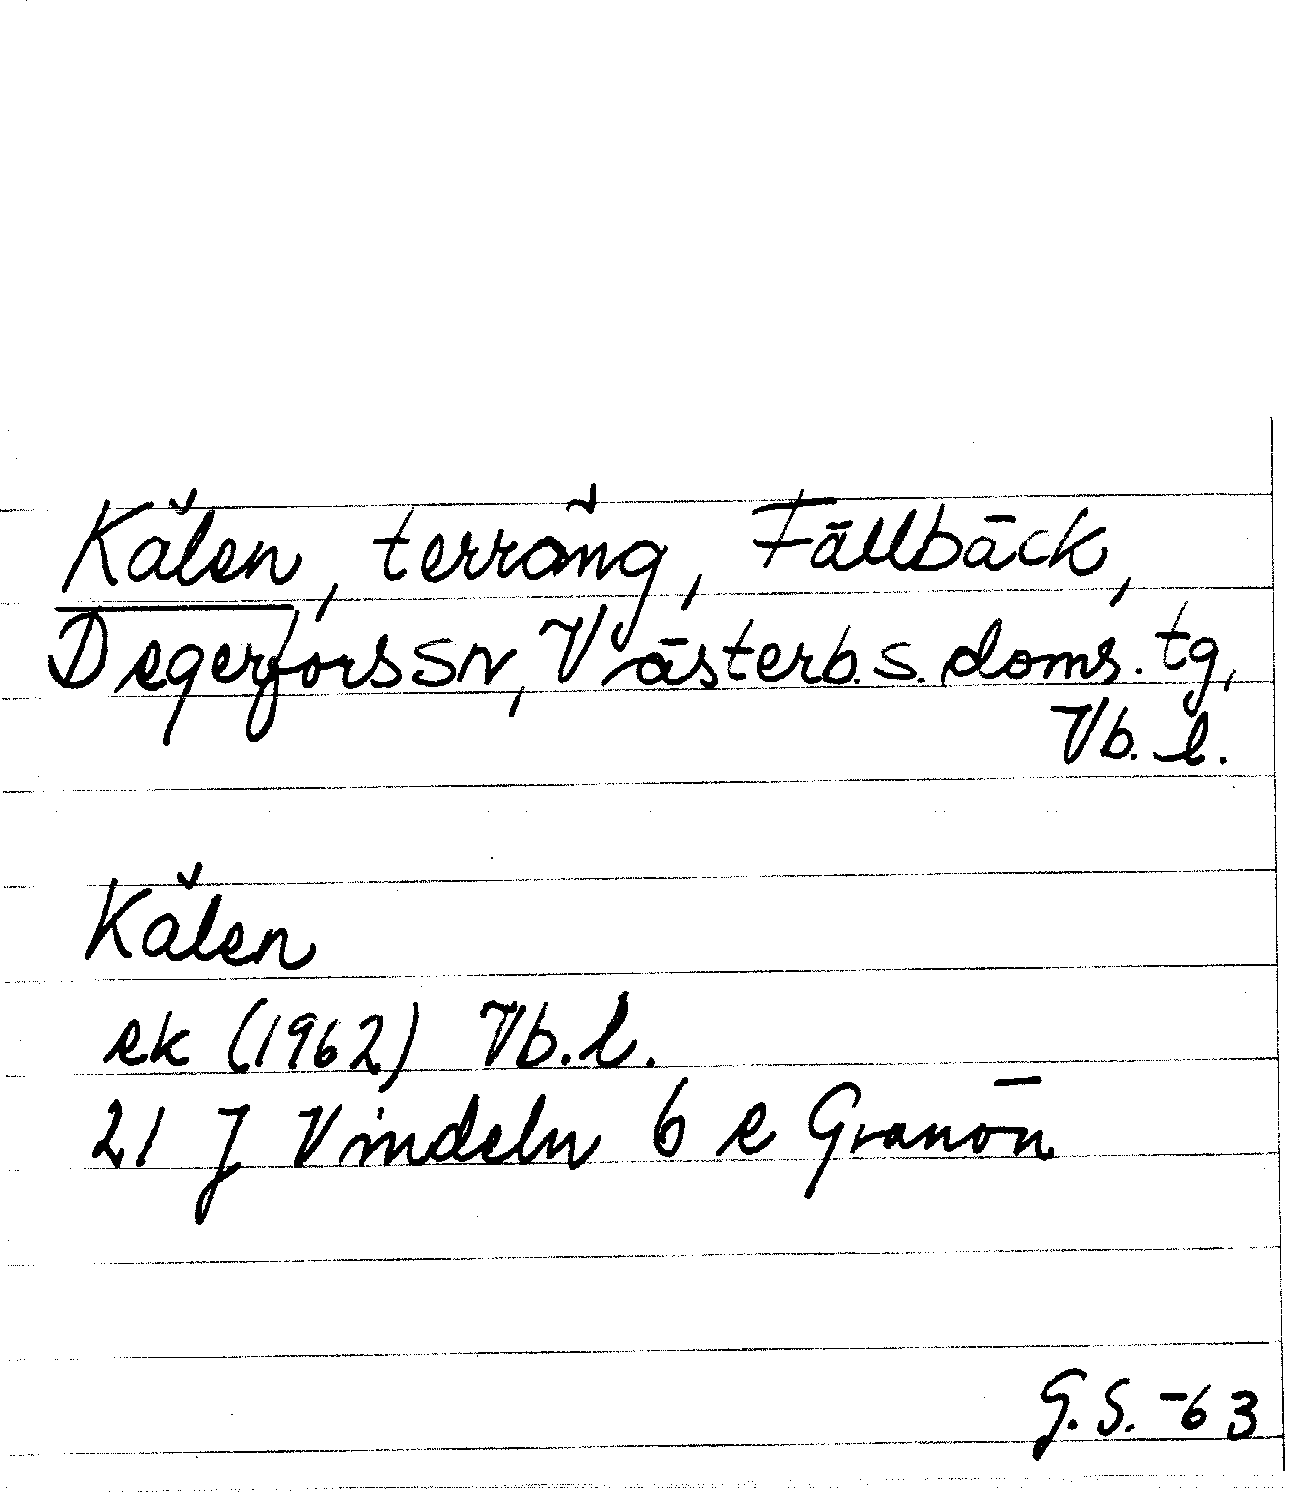 Kålen, terräng, Fällbäck,
Degerfors sn, Västerb. s. doms. tg,
Vb. l.
Kålen
ek (1962) Vb. l.
21 J Vindeln 6 e Granön
G. S. -63